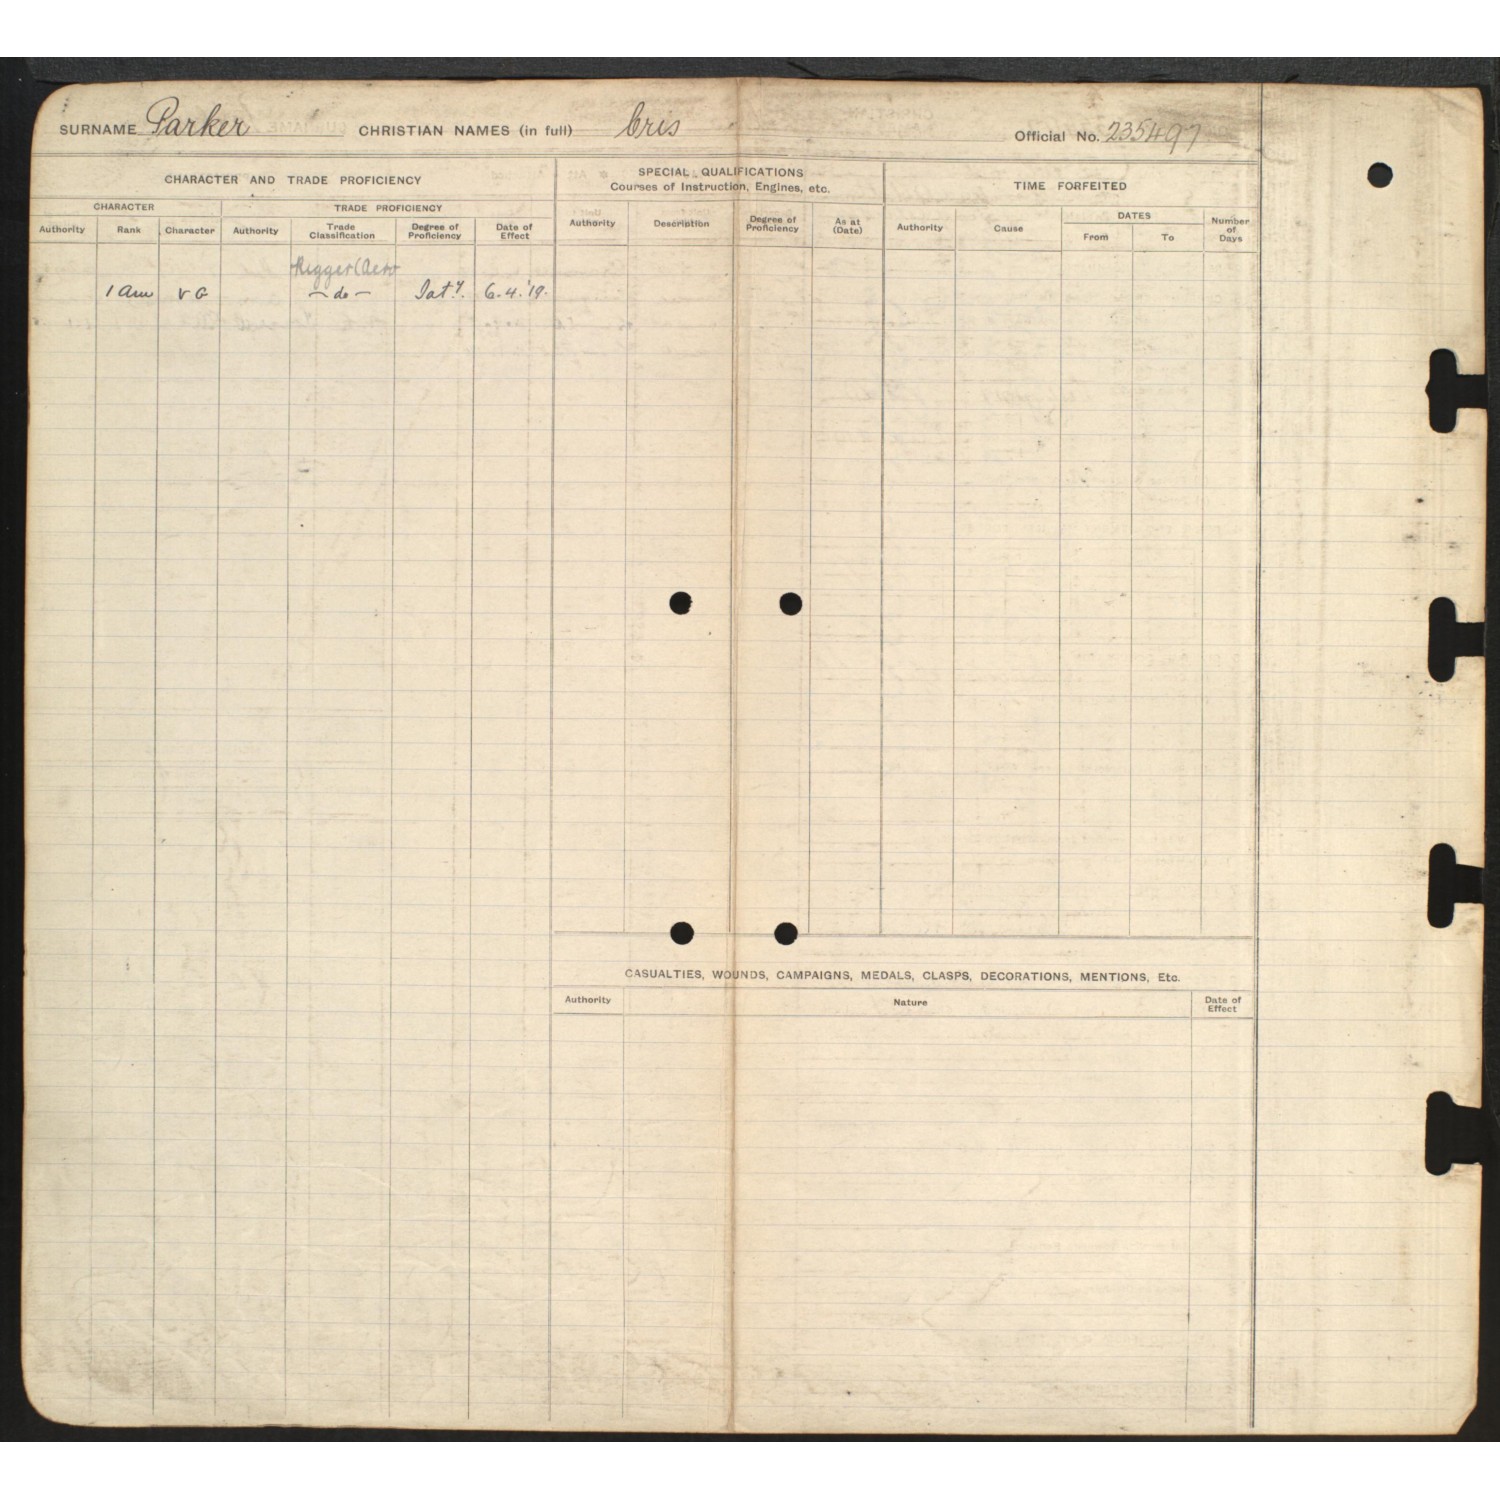 SURNAME Parker CHRISTIAN NAMES (in full) Cris Official No. 235497
CHARACTER AND TRADE PROFICIENCY
CHARACTER
TRADE PROFICIENCY
Authority Rank Character Authority Trade Classification Degree of Proficiency Date of Effect
Rigger (Aero
1 Am V G — do — Saty. 6.4.'19.
SPECIAL QUALIFICATIONS
Courses of Instruction, Engines, etc.
Authority Description Degree of Proficiency As at (Date)
TIME FORFEITED
Authority Cause DATES Number of Days
From To
CASUALTIES, WOUNDS, CAMPAIGNS, MEDALS, CLASPS, DECORATIONS, MENTIONS, Etc.
Authority Nature Date of Effect